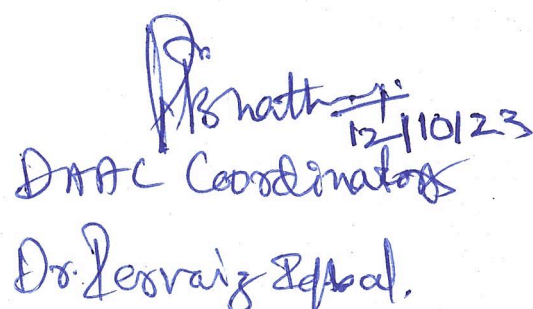 12/10/23
DAAC Coordinator
Dr. Pervaiz Iqbal.